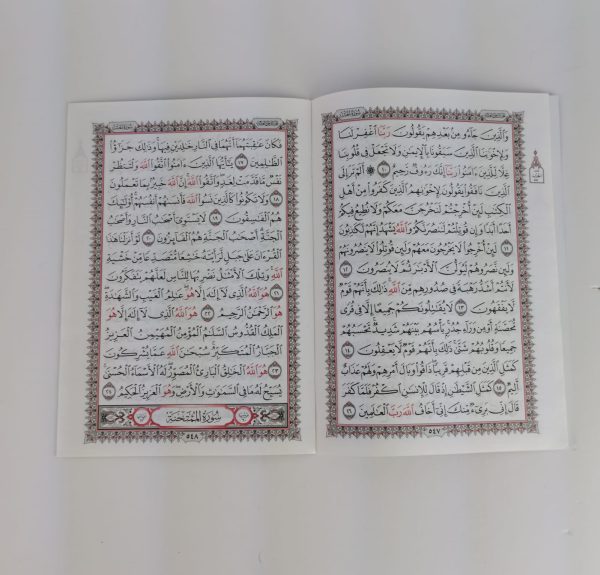 وَالَّذِينَ جَاءُو مِنۢ بَعْدِهِمْ يَقُولُونَ رَبَّنَا اغْفِرْ لَنَا
وَلِإِخْوَانِنَا الَّذِينَ سَبَقُونَا بِالْإِيمَانِ وَلَا تَجْعَلْ فِي قُلُوبِنَا
غِلًّا لِّلَّذِينَ ءَامَنُوا رَبَّنَا إِنَّكَ رَءُوفٌ رَّحِيمٌ ١٠ ۞ أَلَمْ تَرَ إِلَى
الَّذِينَ نَافَقُوا يَقُولُونَ لِإِخْوَانِهِمُ الَّذِينَ كَفَرُوا مِنْ أَهْلِ
الْكِتَابِ لَئِنْ أُخْرِجْتُمْ لَنَخْرُجَنَّ مَعَكُمْ وَلَا نُطِيعُ فِيكُمْ
أَحَدًا أَبَدًا وَإِن قُوتِلْتُمْ لَنَنصُرَنَّكُمْ وَاللَّهُ يَشْهَدُ إِنَّهُمْ لَكَاذِبُونَ
١١ لَئِنْ أُخْرِجُوا لَا يَخْرُجُونَ مَعَهُمْ وَلَئِن قُوتِلُوا لَا يَنصُرُونَهُمْ
وَلَئِن نَّصَرُوهُمْ لَيُوَلُّنَّ الْأَدْبَارَ ثُمَّ لَا يُنصَرُونَ ١٢
لَأَنتُمْ أَشَدُّ رَهْبَةً فِي صُدُورِهِم مِّنَ اللَّهِ ذَٰلِكَ بِأَنَّهُمْ قَوْمٌ
لَّا يَفْقَهُونَ ١٣ لَا يُقَاتِلُونَكُمْ جَمِيعًا إِلَّا فِي قُرًى
مُّحَصَّنَةٍ أَوْ مِن وَرَاءِ جُدُرٍ بَأْسُهُم بَيْنَهُمْ شَدِيدٌ تَحْسَبُهُمْ
جَمِيعًا وَقُلُوبُهُمْ شَتَّىٰ ذَٰلِكَ بِأَنَّهُمْ قَوْمٌ لَّا يَعْقِلُونَ ١٤
كَمَثَلِ الَّذِينَ مِن قَبْلِهِمْ قَرِيبًا ذَاقُوا وَبَالَ أَمْرِهِمْ وَلَهُمْ عَذَابٌ
أَلِيمٌ ١٥ كَمَثَلِ الشَّيْطَانِ إِذْ قَالَ لِلْإِنسَانِ اكْفُرْ فَلَمَّا كَفَرَ
قَالَ إِنِّي بَرِيءٌ مِّنكَ إِنِّي أَخَافُ اللَّهَ رَبَّ الْعَالَمِينَ ١٦
٥٤٧
فَكَانَ عَاقِبَتَهُمَا أَنَّهُمَا فِي النَّارِ خَالِدَيْنِ فِيهَا وَذَٰلِكَ جَزَاءُ
الظَّالِمِينَ ١٧ يَا أَيُّهَا الَّذِينَ ءَامَنُوا اتَّقُوا اللَّهَ وَلْتَنظُرْ
نَفْسٌ مَّا قَدَّمَتْ لِغَدٍ وَاتَّقُوا اللَّهَ إِنَّ اللَّهَ خَبِيرٌ بِمَا تَعْمَلُونَ
١٨ وَلَا تَكُونُوا كَالَّذِينَ نَسُوا اللَّهَ فَأَنسَاهُمْ أَنفُسَهُمْ أُولَٰئِكَ
هُمُ الْفَاسِقُونَ ١٩ لَا يَسْتَوِي أَصْحَابُ النَّارِ وَأَصْحَابُ
الْجَنَّةِ أَصْحَابُ الْجَنَّةِ هُمُ الْفَائِزُونَ ٢٠ لَوْ أَنزَلْنَا هَٰذَا
الْقُرْءَانَ عَلَىٰ جَبَلٍ لَّرَأَيْتَهُ خَاشِعًا مُّتَصَدِّعًا مِّنْ خَشْيَةِ
اللَّهِ وَتِلْكَ الْأَمْثَالُ نَضْرِبُهَا لِلنَّاسِ لَعَلَّهُمْ يَتَفَكَّرُونَ
٢١ هُوَ اللَّهُ الَّذِي لَا إِلَٰهَ إِلَّا هُوَ عَالِمُ الْغَيْبِ وَالشَّهَادَةِ
هُوَ الرَّحْمَٰنُ الرَّحِيمُ ٢٢ هُوَ اللَّهُ الَّذِي لَا إِلَٰهَ إِلَّا هُوَ
الْمَلِكُ الْقُدُّوسُ السَّلَامُ الْمُؤْمِنُ الْمُهَيْمِنُ الْعَزِيزُ
الْجَبَّارُ الْمُتَكَبِّرُ سُبْحَانَ اللَّهِ عَمَّا يُشْرِكُونَ
٢٣ هُوَ اللَّهُ الْخَالِقُ الْبَارِئُ الْمُصَوِّرُ لَهُ الْأَسْمَاءُ الْحُسْنَىٰ
يُسَبِّحُ لَهُ مَا فِي السَّمَاوَاتِ وَالْأَرْضِ وَهُوَ الْعَزِيزُ الْحَكِيمُ ٢٤
سُورَةُ الْمُمْتَحَنَةِ
٥٤٨